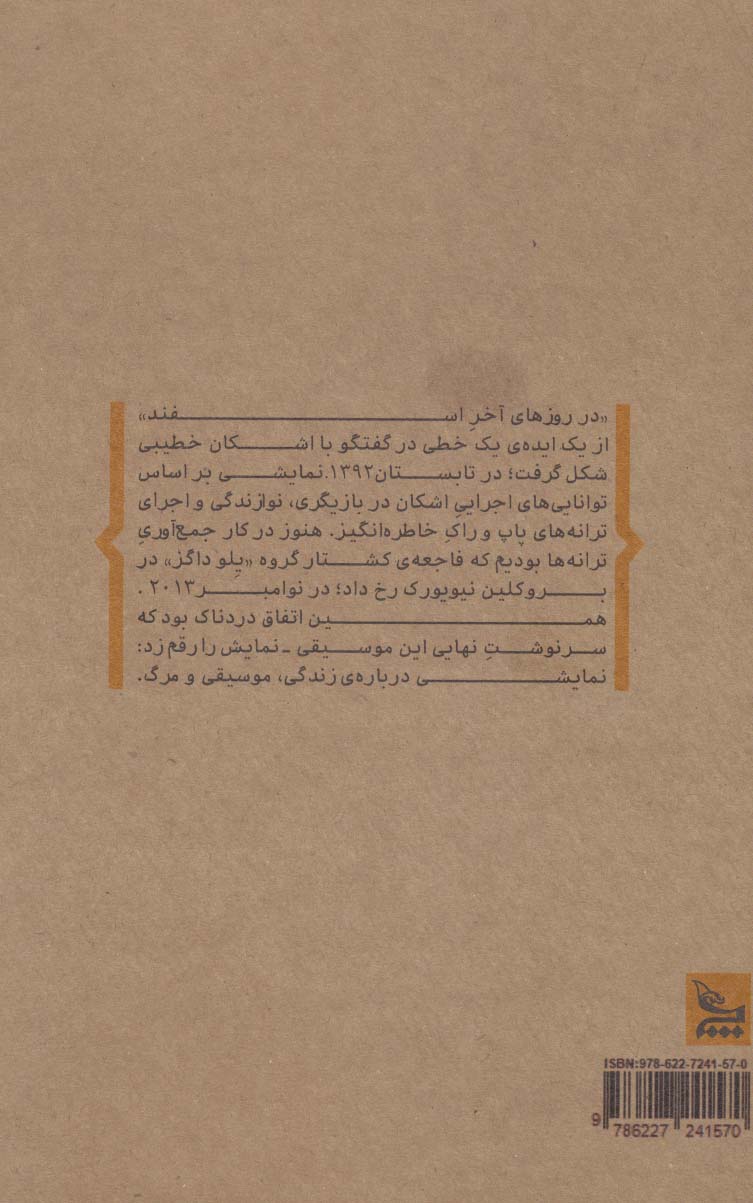 «در روزهای آخرِ اسفند»
از یک ایده‌ی یک خطی در گفتگو با اشکان خطیبی
شکل گرفت؛ در تابستان۱۳۹۲.نمایشی بر اساس
توانایی‌های اجراییِ اشکان در بازیگری، نوازندگی و اجرای
ترانه‌های پاپ و راکِ خاطره‌انگیز. هنوز در کار جمع‌آوریِ
ترانه‌ها بودیم که فاجعه‌ی کشتار گروه «یِلو داگز» در
بروکلین نیویورک رخ داد؛ در نوامبر۲۰۱۳ .
همین اتفاق دردناک بود که
سرنوشتِ نهایی این موسیقی ـ نمایش را رقم زد:
نمایشی درباره‌ی زندگی، موسیقی و مرگ.
ISBN:978-622-7241-57-0
9 786227 241570